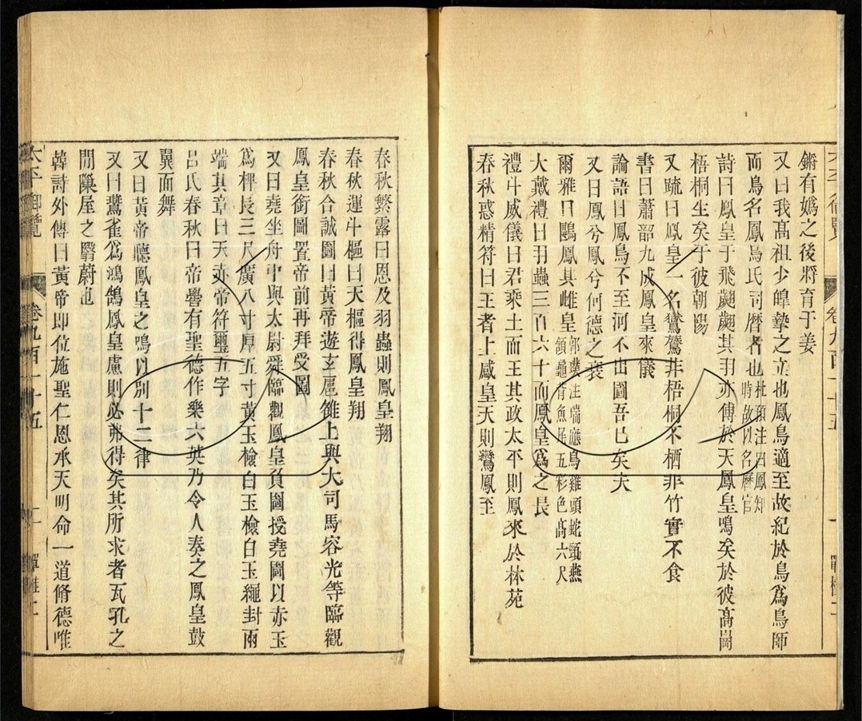 鏘有嬀之後將育于姜
又曰我髙祖少皥摯之立也鳳鳥適至故紀於鳥爲鳥師
而鳥名鳳鳥氏司曆者也杜預注曰鳳知時故以名曆官
詩曰鳳皇于飛翽翽其羽亦傅於天鳳皇鳴矣於彼髙岡
梧桐生矣于彼朝陽
又疏曰鳳皇一名鶠鶠非梧桐不棲非竹實不食
書曰蕭韶九成鳳皇來儀
論語曰鳳鳥不至河不出圖吾已矣夫
又曰鳳兮鳳兮何德之衰
爾雅曰鶠鳳其雌皇郭璞注瑞應鳥雞頭蛇頸燕頷龜背魚尾五彩色髙六尺
大戴禮曰羽蟲三百六十而鳳皇爲之長
禮斗威儀曰君乘土而王其政太平則鳳來於林苑
春秋惑精符曰王者上感皇天則鸞鳳至
春秋繁露曰恩及羽蟲則鳳皇翔
春秋運斗樞曰天樞得鳳皇翔
春秋合誠圖曰黃帝遊玄扈雒上與大司馬容光等臨觀
鳳皇銜圖置帝前再拜受圖
又曰堯坐舟中與太尉舜臨觀鳳皇負圖授堯圖以赤玉
爲柙長三尺廣八寸厚五寸黃玉檢白玉檢白玉繩封兩
端其章曰天赤帝符璽五字
呂氏春秋曰帝嚳有聖德作樂六英乃令人奏之鳳皇鼓
翼而舞
又曰黃帝聽鳳皇之鳴以別十二律
又曰鷙雀爲鴻鵠鳳皇慮則必弗得矣其所求者瓦孔之
閒隟屋之翳蔚也
韓詩外傳曰黃帝即位施聖仁恩承天明命一道脩德唯
太平御覽
卷九百一十五